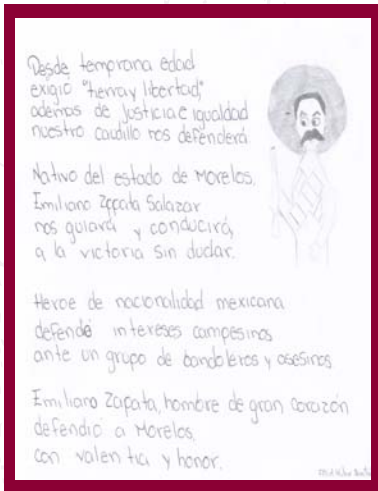 Desde temprana edad
exigió "tierra y libertad",
además de justicia e igualdad
nuestro caudillo nos defenderá.
Nativo del estado de Morelos,
Emiliano Zapata Salazar
nos guiará y conducirá,
a la victoria sin dudar.
Heroe de nacionalidad mexicana
defende intereses campesinos
ante un grupo de bandoleros y asesinos
Emiliano Zapata, hombre de gran corazón
defendió a Morelos
con valentia y honor.